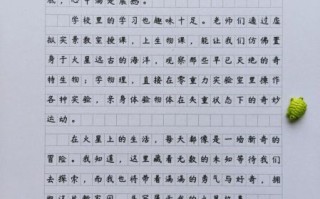 眠，心中满是震撼。
学校里的学习也趣味十足。老师们通过虚
拟实景教室授课，上生物课，能让我们仿佛置
身于火星远古的海洋，观察那些早已灭绝的奇
特生物；学物理，直接在零重力实验室里操作
各种实验，亲身体验物体在失重状态下的奇妙
运动。
在火星上的生活，每天都像是一场新奇的
冒险。我知道，这里藏着无数的未知等待我们
去探索，而我也将带着满满的勇气与好奇，拥